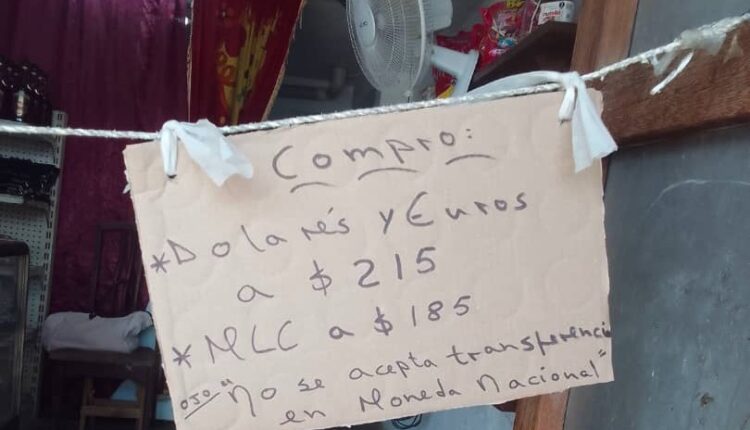 Compro:
*Dolarés y Euros
a $ 215
* MLC a $ 185
OJO "No se acepta transferencia
en Moneda Nacional"